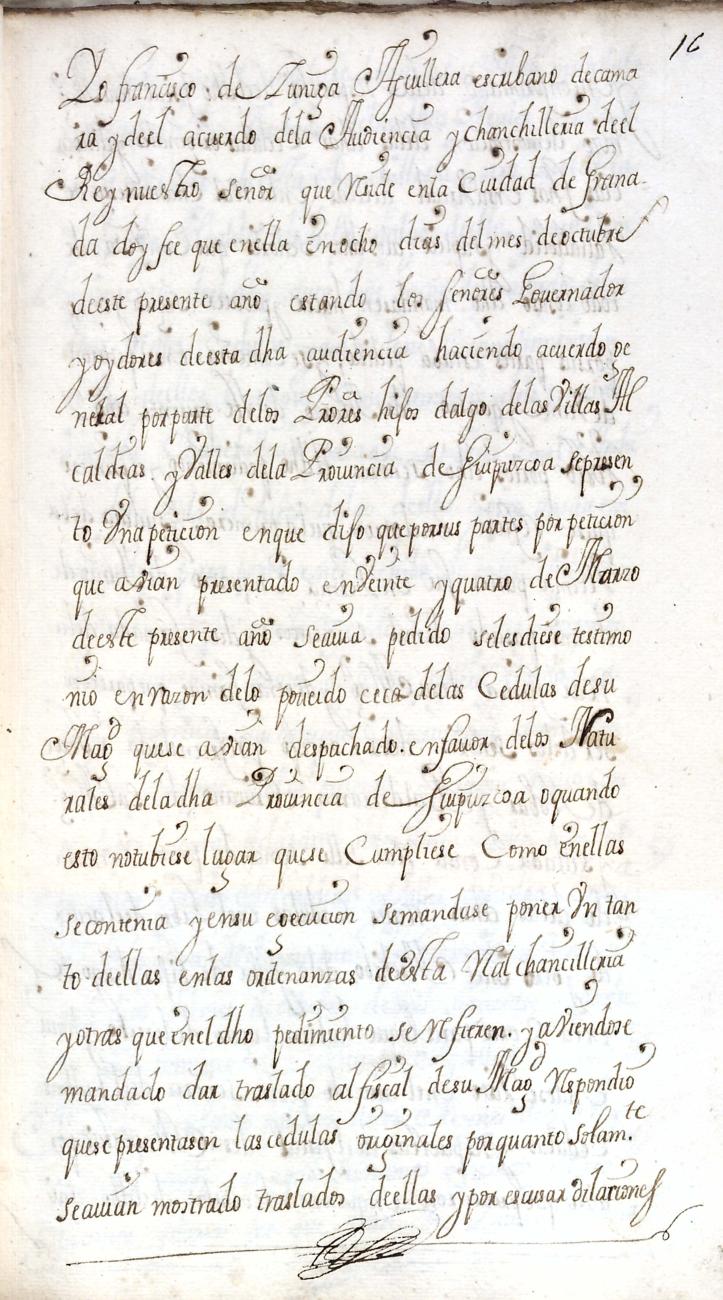 16
Yo francisco de Zuniga Aguillera escribano de cama
ra y de el acuerdo de la Audiencia y chanchilleria de el
Rey nuestro señor que Reside en la Ciudad de Grana
da doy fee que en ella en ocho dias del mes de octubre
de este presente año estando los señores Governador
y oydores de esta dha audiencia haciendo acuerdo ge
neral por parte de los Prores hijos dalgo de las Villas Al
caldias y Valles de la Provincia de Guipuzcoa se presen
to Vna peticion en que dijo que por sus partes por peticion
que avian presentado en Veinte y quatro de Marzo
de este presente año se avia pedido se les diese testimo
nio en razon de lo poveido ceca de las Cedulas de su
Magd que se avian despachado. en favor de los Natu
rales de la dha Provincia de Guipuzcoa o quando
esto no tubiese lugar que se Cumpliese Como en ellas
se contenia y en su egecucion se mandase poner Vn tan
to de ellas en las ordenanzas de esta Real chancilleria
y otras que en el dho pedimiento se Refieren. y aViendose
mandado dar traslado al fiscal de su Magd Respondio
que se presentasen las cedulas originales por quanto solam.te
se avian mostrado traslados de ellas y por escusar dilaciones